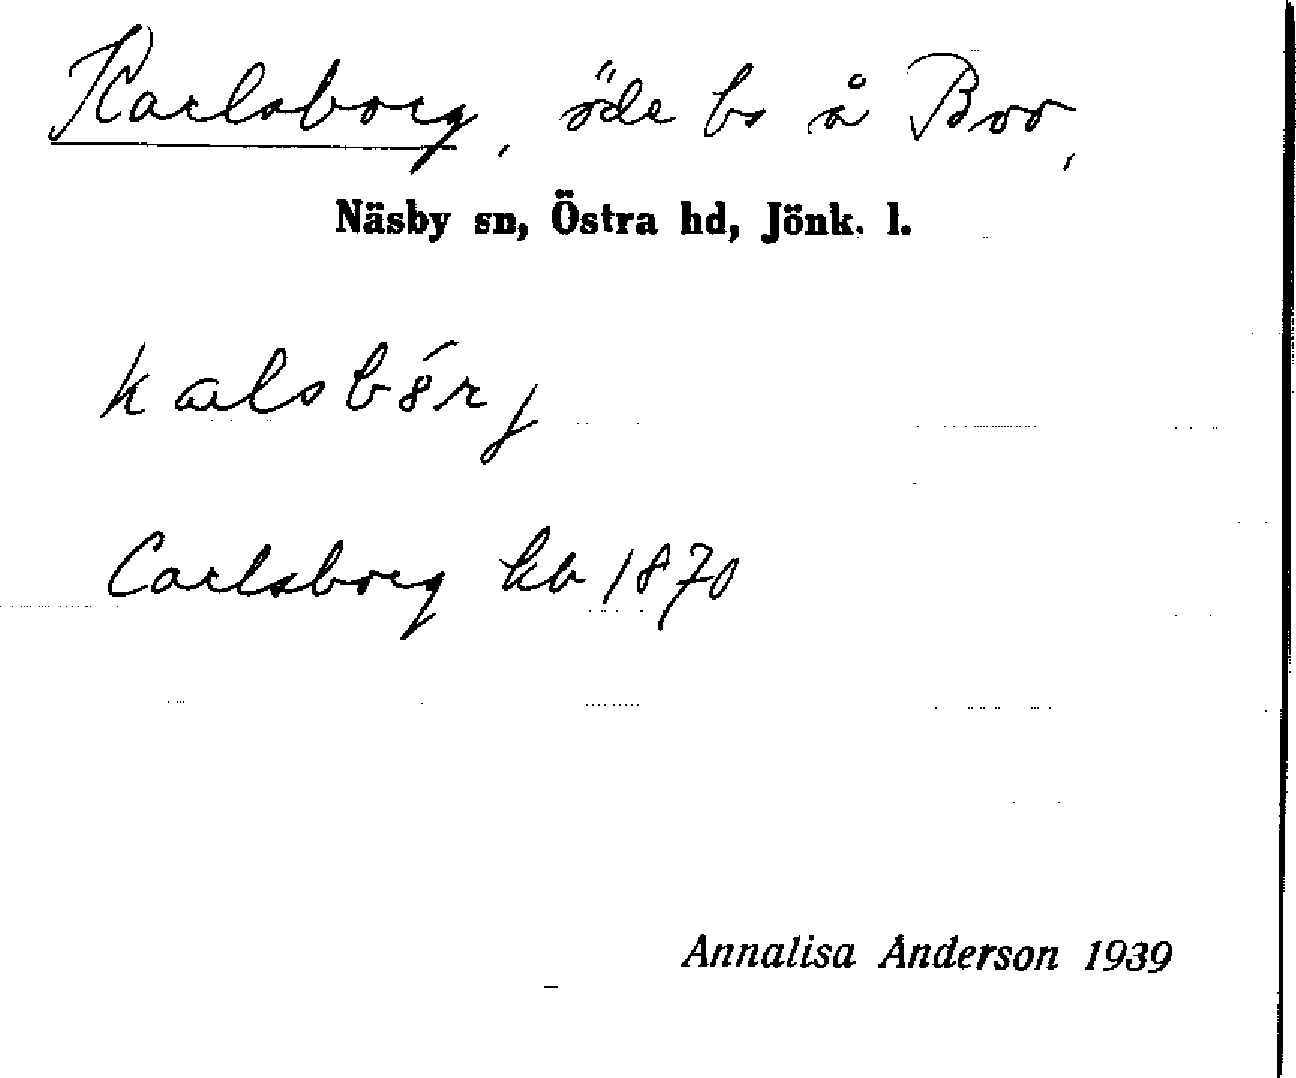 Karlsborg, öde bs å Boo,
Näsby sn, Östra hd, Jönk. l.
Carlsborg kb 1870
Annalisa Anderson 1939